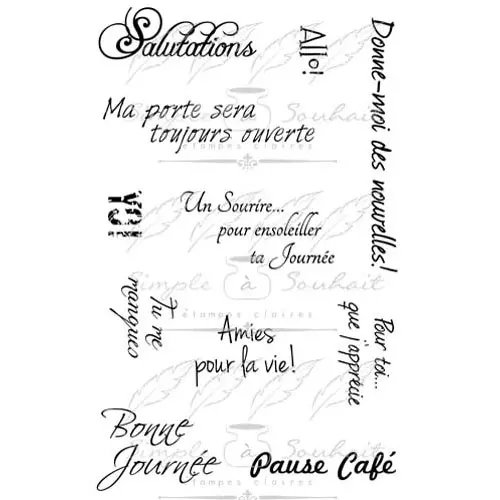 Salutations
Allo!
Donne-moi des nouvelles!
Ma porte sera
toujours ouverte
Simple à Souhait
étampes claires
YO!
Un Sourire...
pour ensoleiller
ta Journée
Simple à Souhait
étampes claires
Tu me
manques
Amies
pour la vie!
Pour toi...
que j'apprécie
Bonne
Journée
Pause Café
Simple à Souhait